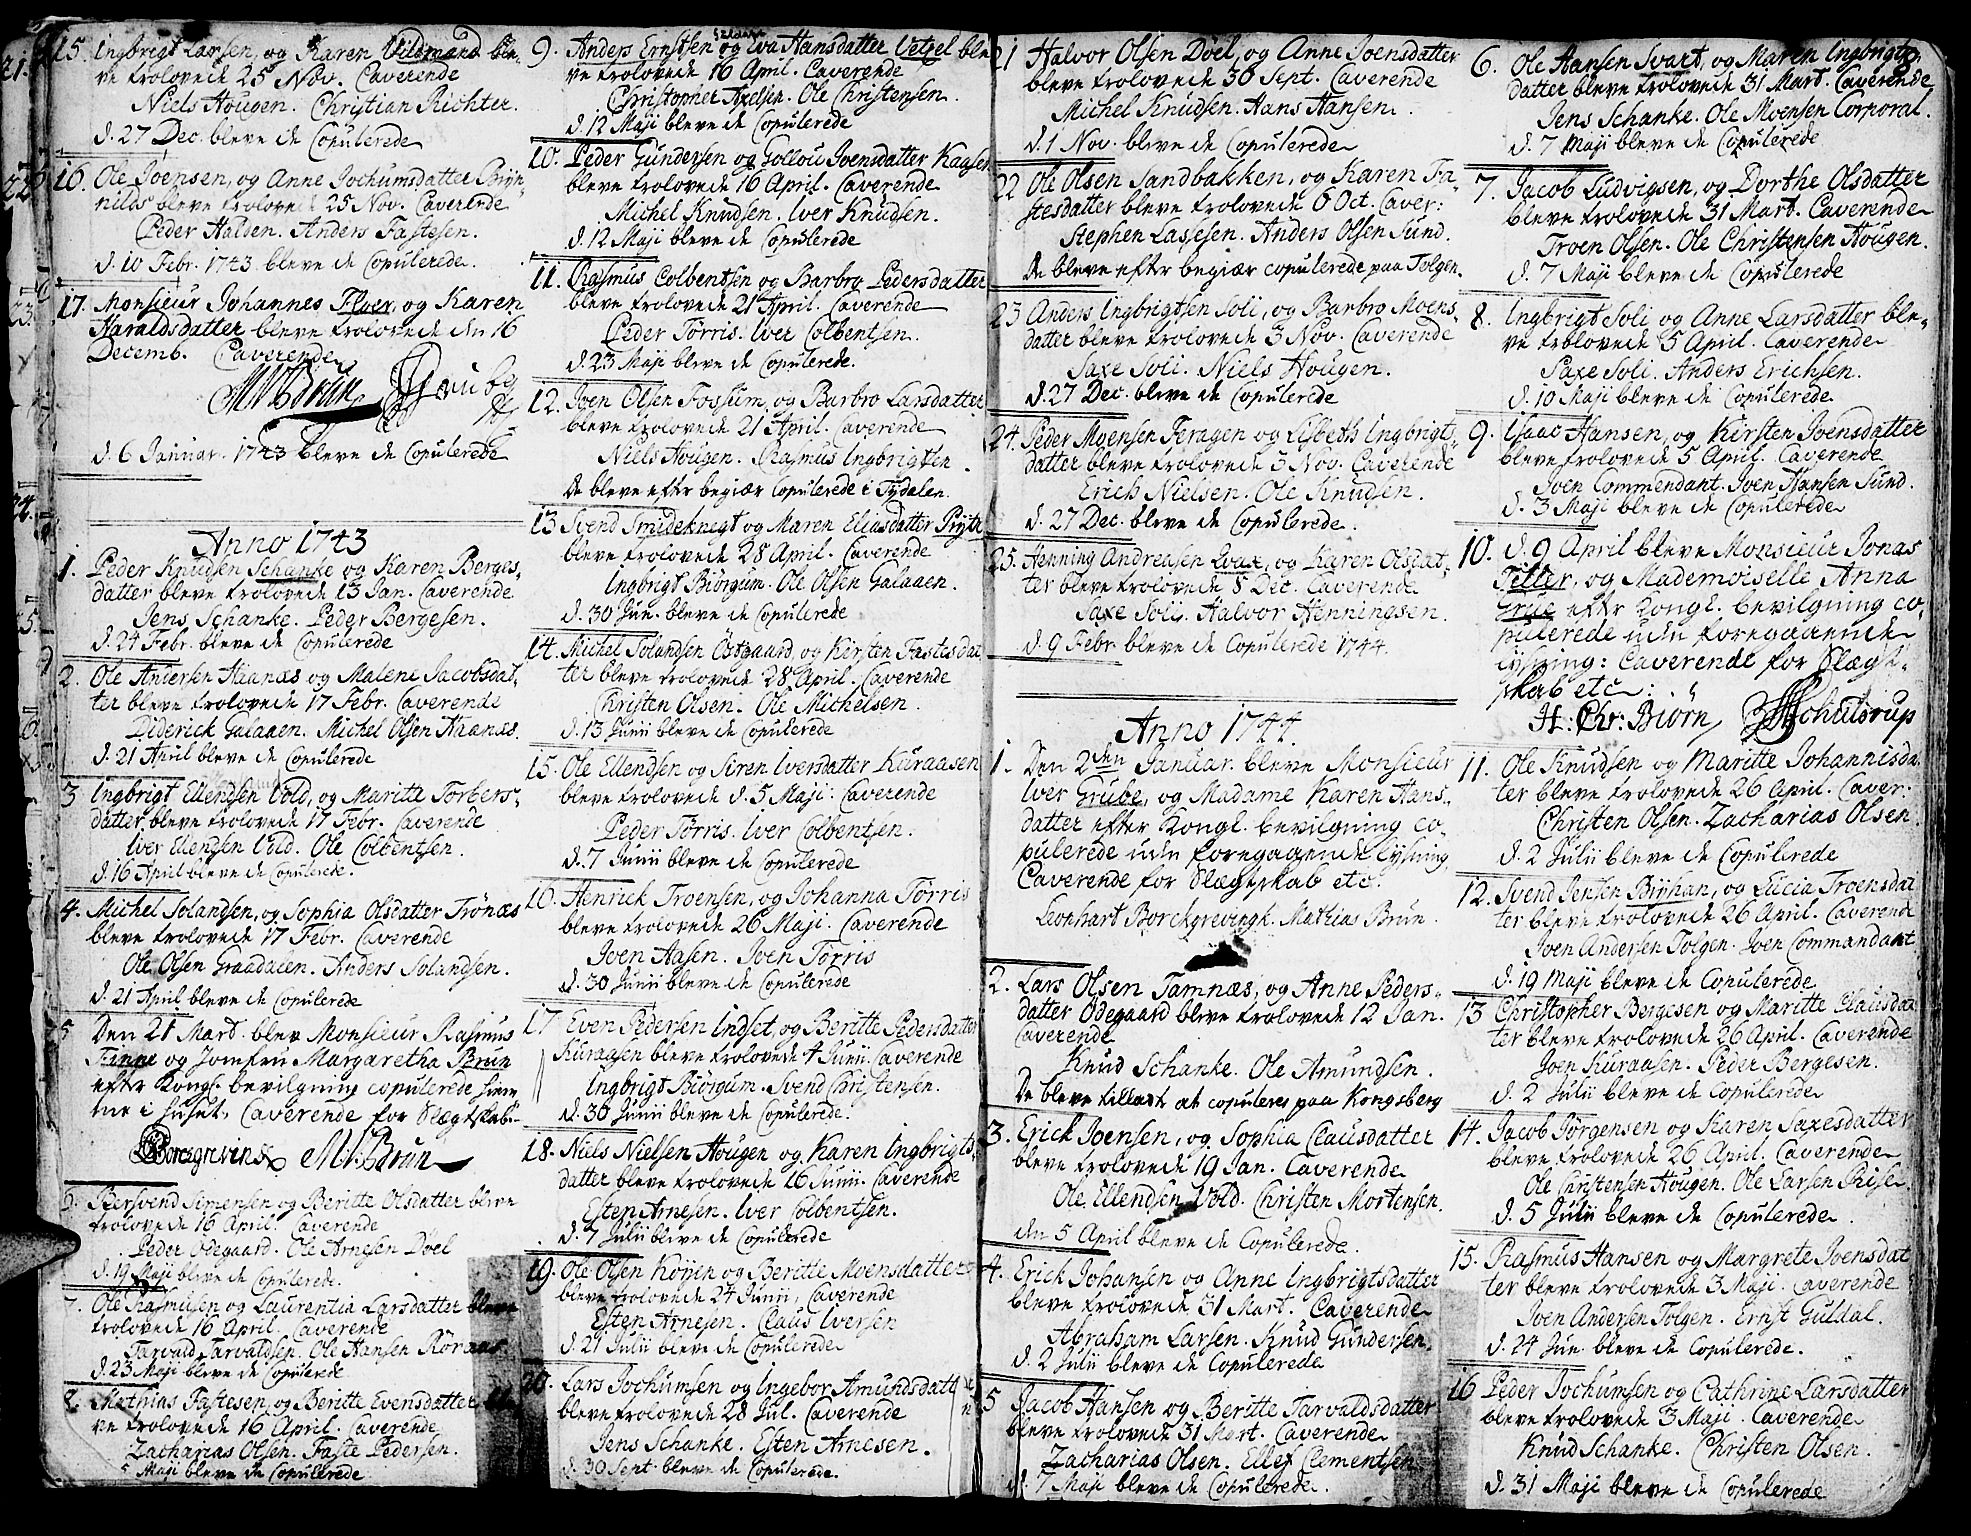 15. Ingbrigt Larsen, og Karen Vildmand ble-
ve trolovede 25 Nov. Caverende
Niels Hougen. Christian Richter.
d. 27 Dec. bleve de Copulerede
16. Ole Joensen, og Anne Jochumsdatter Bryn-
nilds bleve trolovede 25 Nov. Caverende
Peder Halden. Anders Fastesen.
d. 10 Febr. 1743 bleve de Copulerede.
17. Monsieur Johannes Floer, og Karen
Haraldsdatter bleve trolovede den 16
Decemb. Caverende
d. 6 Januar. 1743 bleve de Copulerede
Anno 1743
1. Peder Knudsen Schanke og Karen Berges-
datter bleve trolovede 13 Jan. Caverende
Jens Schanke. Peder Bergesen.
d. 24 Febr. bleve de Copulerede
2. Ole Andersen Haanæs og Malene Jacobsdat-
ter bleve trolovede 17 Febr. Caverende
Diderick Galaaen. Michel Olsen Haanæs.
d. 21 April bleve de Copulerede
3 Ingbrigt Ellendsen Vold, og Maritte Torbers-
datter bleve trolovede 17 Febr. Caverende
Iver Ellensen Vold. Ole Colbentsen.
d. 16 April bleve de Copulerede.
4. Michel Solandsen, og Sophia Olsdatter Trönæs
bleve trolovede 17 Febr. Caverende
Ole Olsen Graadalen. Anders Solandsen.
d. 21 April bleve de Copulerede
5 Den 21 Mart. blev Monsieur Rasmus
Finne og Jomfru Margaretha Brun
efter Kongl. bevilgning copulerede hiem-
me i huset. Caverende for Slegtskab.
M. Brun
6. Bersvend Simensen og Beritte Olsdatter bleve
trolovede 16 April. Caverende
Peder Odegaard. Ole Arnesen Döel
d. 19 Maji bleve de Copulerede.
7. Ole Rasmusen og Laurentia Larsdatter bleve
trolovede 16 April. Caverende
Tarvald Tarvaldsen. Ole Hansen Röraas
d. 23 Maji bleve de Copulerede
8. Mathias Fastesen, og Beritte Evensdatter ble-
ve trolovede 16 April. Caverende
Zacharias Olsen. Faste Pedersen.
5 Maji bleve de Copulerede
9. Anders Ernstsen og Eva Hansdatter Vetzel ble-
ve trolovede 16 April. Caverende
Christopher Axelsen. Ole Christensen.
d. 12 Maji bleve de Copulerede
10. Peder Gundersen og Gollou Joensdatter
bleve trolovede 16 April. Caverende
Michel Knudsen. Iver Knudsen.
d. 12 Maji bleve de Copulerede
11. Rasmus Colbentsen og Barbro Pedersdatter
bleve trolovede 21 April. Caverende
Peder Törris. Iver Colbentsen.
d. 23 Maji bleve de Copulerede.
12. Joen Olsen Fossum, og Barbro Larsdatter
bleve trolovede 21 April. Caverende
Niels Hougen. Rasmus Ingbrigtsen.
De bleve efter begiær copulerede i Tydalen.
13 Svend Smideknegt og Maren Eliasdatter Prytz
bleve trolovede 28 April. Caverende
Ingbrigt Biörgum. Ole Olsen Galaaen.
d. 30 Jun. bleve de Copulerede
14. Michel Solandsen Östgaard, og Kirsten Fastesdat
ter bleve trolovede 28 April. Caverende
Christen Olsen. Ole Michelsen.
d. 13 Junii bleve de Copulerede
15. Ole Ellendsen og Siren Iversdatter Kuraasen
bleve trolovede d. 5 Maji. Caverende
Peder Törris. Iver Colbentsen.
d. 7 Junii bleve de Copulerede
16. Henrick Troensen, og Johanna Törris
bleve trolovede 26 Maji. Caverende
Joen Aasen. Joen Törris
d. 30 Junii bleve de Copulerede
17 Even Pedersen Indset, og Beritte Pedersdatter
Kuraasen bleve trolovede 4 Junii. Caverende
Ingbrigt Biörgum. Svend Christensen.
d. 30 Junii bleve de Copulerede.
18. Niels Nielsen Hougen og Karen Ingbrigts-
datter bleve trolovede 16 Junii. Caverende
Esten Arnesen. Iver Colbentsen.
d. 7 Julii bleve de Copulerede
19. Ole Olsen Kojen og Beritte Moensdatter
bleve trolovede 24 Junii. Caverende
Esten Arnesen. Claus Iversen
d. 21 Julii bleve de Copulerede
20. Lars Jochumsen og Ingebor Amundsdatt
bleve trolovede 28 Jul. Caverende
Jens Schanke. Esten Arnesen.
d. 30 Sept. bleve de Copulerede.
21 Halvor Olsen Döel, og Anne Joensdatter
bleve trolovede 30 Sept. Caverende
Michel Knudsen. Hans Hansen.
d. 1 Nov. bleve de Copulerede
22 Ole Olsen Sandbakken, og Karen Fa-
stesdatter bleve trolovede 6 Oct. Caver:
Stephen Lassesen. Anders Olsen Sund.
De bleve efter begiær copulerede paa Tolgen.
23 Anders Ingbrigtsen Soli, og Barbro Moens-
datter bleve trolovede 3 Nov. Caverende
Saxe Soli. Niels Hougen.
d. 27 Dec. bleve de Copulerede
24. Peder Moensen Feragen og Lisbeth Ingbrigts-
datter bleve trolovede 3 Nov. Caverende
Erich Nielsen. Ole Knudsen.
d. 27 Dec. bleve de Copulerede.
25. Henning Andreasen Qvax, og Karen Olsdat-
ter bleve trolovede 8 Dec. Caverende
Saxe Soli. Halvor Henningsen.
d. 9 Febr. bleve de Copulerede 1744.
Anno 1744.
1. Den 2den Januar. bleve Monsieur
Iver Grube, og Madame Karen Hans-
datter efter Kongl. bevilgning co-
pulerede uden foregaaende Lysning.
Caverende for Slægtskab etc.
Leonhart Borckgrevingk. Mathias Brun.
2. Lars Olsen Tamnæs, og Anne Peders-
datter Odegaard bleve trolovede 12 Jan.
Caverende
Knud Schanke. Ole Amundsen.
De bleve tilladt at copuleres paa Kongsberg
3. Erick Joensen, og Sophia Clausdatter
bleve trolovede 19 Jan. Caverende
Ole Ellendsen Vold. Christen Mortensen.
den 5 April bleve de Copulerede.
4. Erick Johansen og Anne Ingbrigtsdatter
bleve trolovede 31 Mart. Caverende
Abraham Larsen. Knud Gundersen.
d. 2 Julii bleve de Copulerede
5 Jacob Hansen og Beritte Tarvaldsdatter
bleve trolovede 31 Mart. Caverende
Zacharias Olsen. Ellef Clementsen
d. 7 Maji bleve de Copulerede.
6. Ole Hansen Svart, og Maren Ingbrigts-
datter bleve trolovede 31 Mart. Caverende
Jens Schanke. Ole Moensen Corporal.
d. 7 Maji bleve de Copulerede
7. Jacob Ludvigsen, og Dorthe Olsdatter
bleve trolovede 31 Mart. Caverende
Troen Olsen. Ole Christensen Hougen.
d. 7 Maji bleve de Copulerede
8. Ingbrigt Soli og Anne Larsdatter ble-
ve trolovede 5 April. Caverende
Saxe Soli. Anders Erichsen.
d. 10 Maji bleve de Copulerede
9. Isaac Hansen, og Kirsten Joensdatter
bleve trolovede 5 April. Caverende
Joen Commendant. Joen Hansen Sund.
d. 3 Maji bleve de Copulerede
10. d. 9 April bleve Monsieur Jonas
Teller, og Mademoiselle Anna
efter Kongl. bevilgning co-
pulerede uden foregaaende
Lysning: Caverende for Slægt-
skab etc:
H. Chr: Biörn Schultrup
11. Ole Knudsen og Maritte Johannisda
ter bleve trolovede 26 April. Caver:
Christen Olsen. Zacharias Olsen.
d. 2 Julii bleve de Copulerede
12. Svend Jensen Bryhan, og Lucia Troensdat
ter bleve trolovede 26 April. Caverende
Joen Andersen Tolgen. Joen Commandant
d. 19 Maji bleve de Copulerede
13 Christopher Bergesen og Maritte Clausdat
ter bleve trolovede 26 April. Caverende
Joen Kuraasen. Peder Bergesen.
d. 2 Julii bleve de Copulerede
14. Jacob Jörgensen og Karen Saxesdatter
bleve trolovede 26 April. Caverende
Ole Christensen Hougen. Ole Larsen Riise
d. 5 Julii bleve de Copulerede.
15. Rasmus Hansen og Margrete Joensdat
ter bleve trolovede 3 Maji. Caverende
Joen Andersen Tolgen. Ernst Guldal.
d. 24 Jun. bleve de Copulerede.
16 Peder Jochumsen og Cathrine Larsdatter
bleve trolovede 3 Maji. Caverende
Knud Schanke. Christen Olsen.
d. 31 Maji bleve de Copulerede